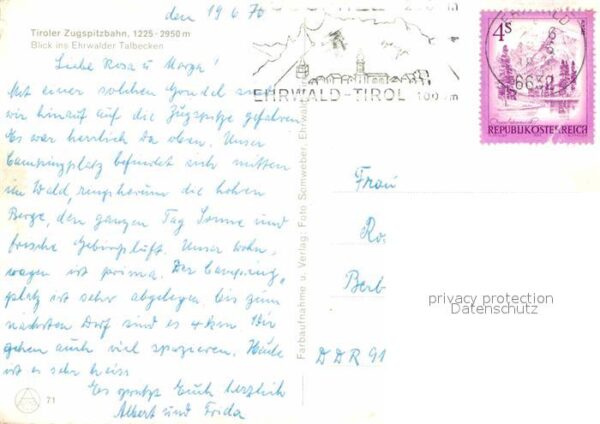 den 19.6.76
Tiroler Zugspitzbahn, 1225-2950 m
Blick ins Ehrwalder Talbecken
Liebe Rosa u Marga!
Mit einer solchen Gondel sind
wir hinauf auf die Zugspitze gefahren
Es war herrlich da oben. Unser
Campingplatz befindet sich mitten
im Wald, ringsherum die hohen
Berge, den ganzen Tag Sonne und
frische Gebirgsluft. Unser Wohn-
wagen ist prima. Der Camping-
platz ist sehr abgelegen bis zum
nächsten Dorf sind es 4 km. Wir
gehen auch viel spazieren. Heute
ist es sehr heiss
Es grüsst Euch herzlich
Albert und Frida
71
Farbaufnahme u. Verlag: Foto Somweber, Ehrwald
EHRWALD-TIROL
6632
4S
REPUBLIK ÖSTERREICH
Frau
Ro.
Berb
DDR 91
privacy protection
Datenschutz